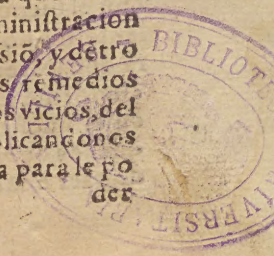 miniſtracion
sió, y détro
s remedios
os vicios, del
licandonos
a para le po
der
BIBLIOT
VERSIT